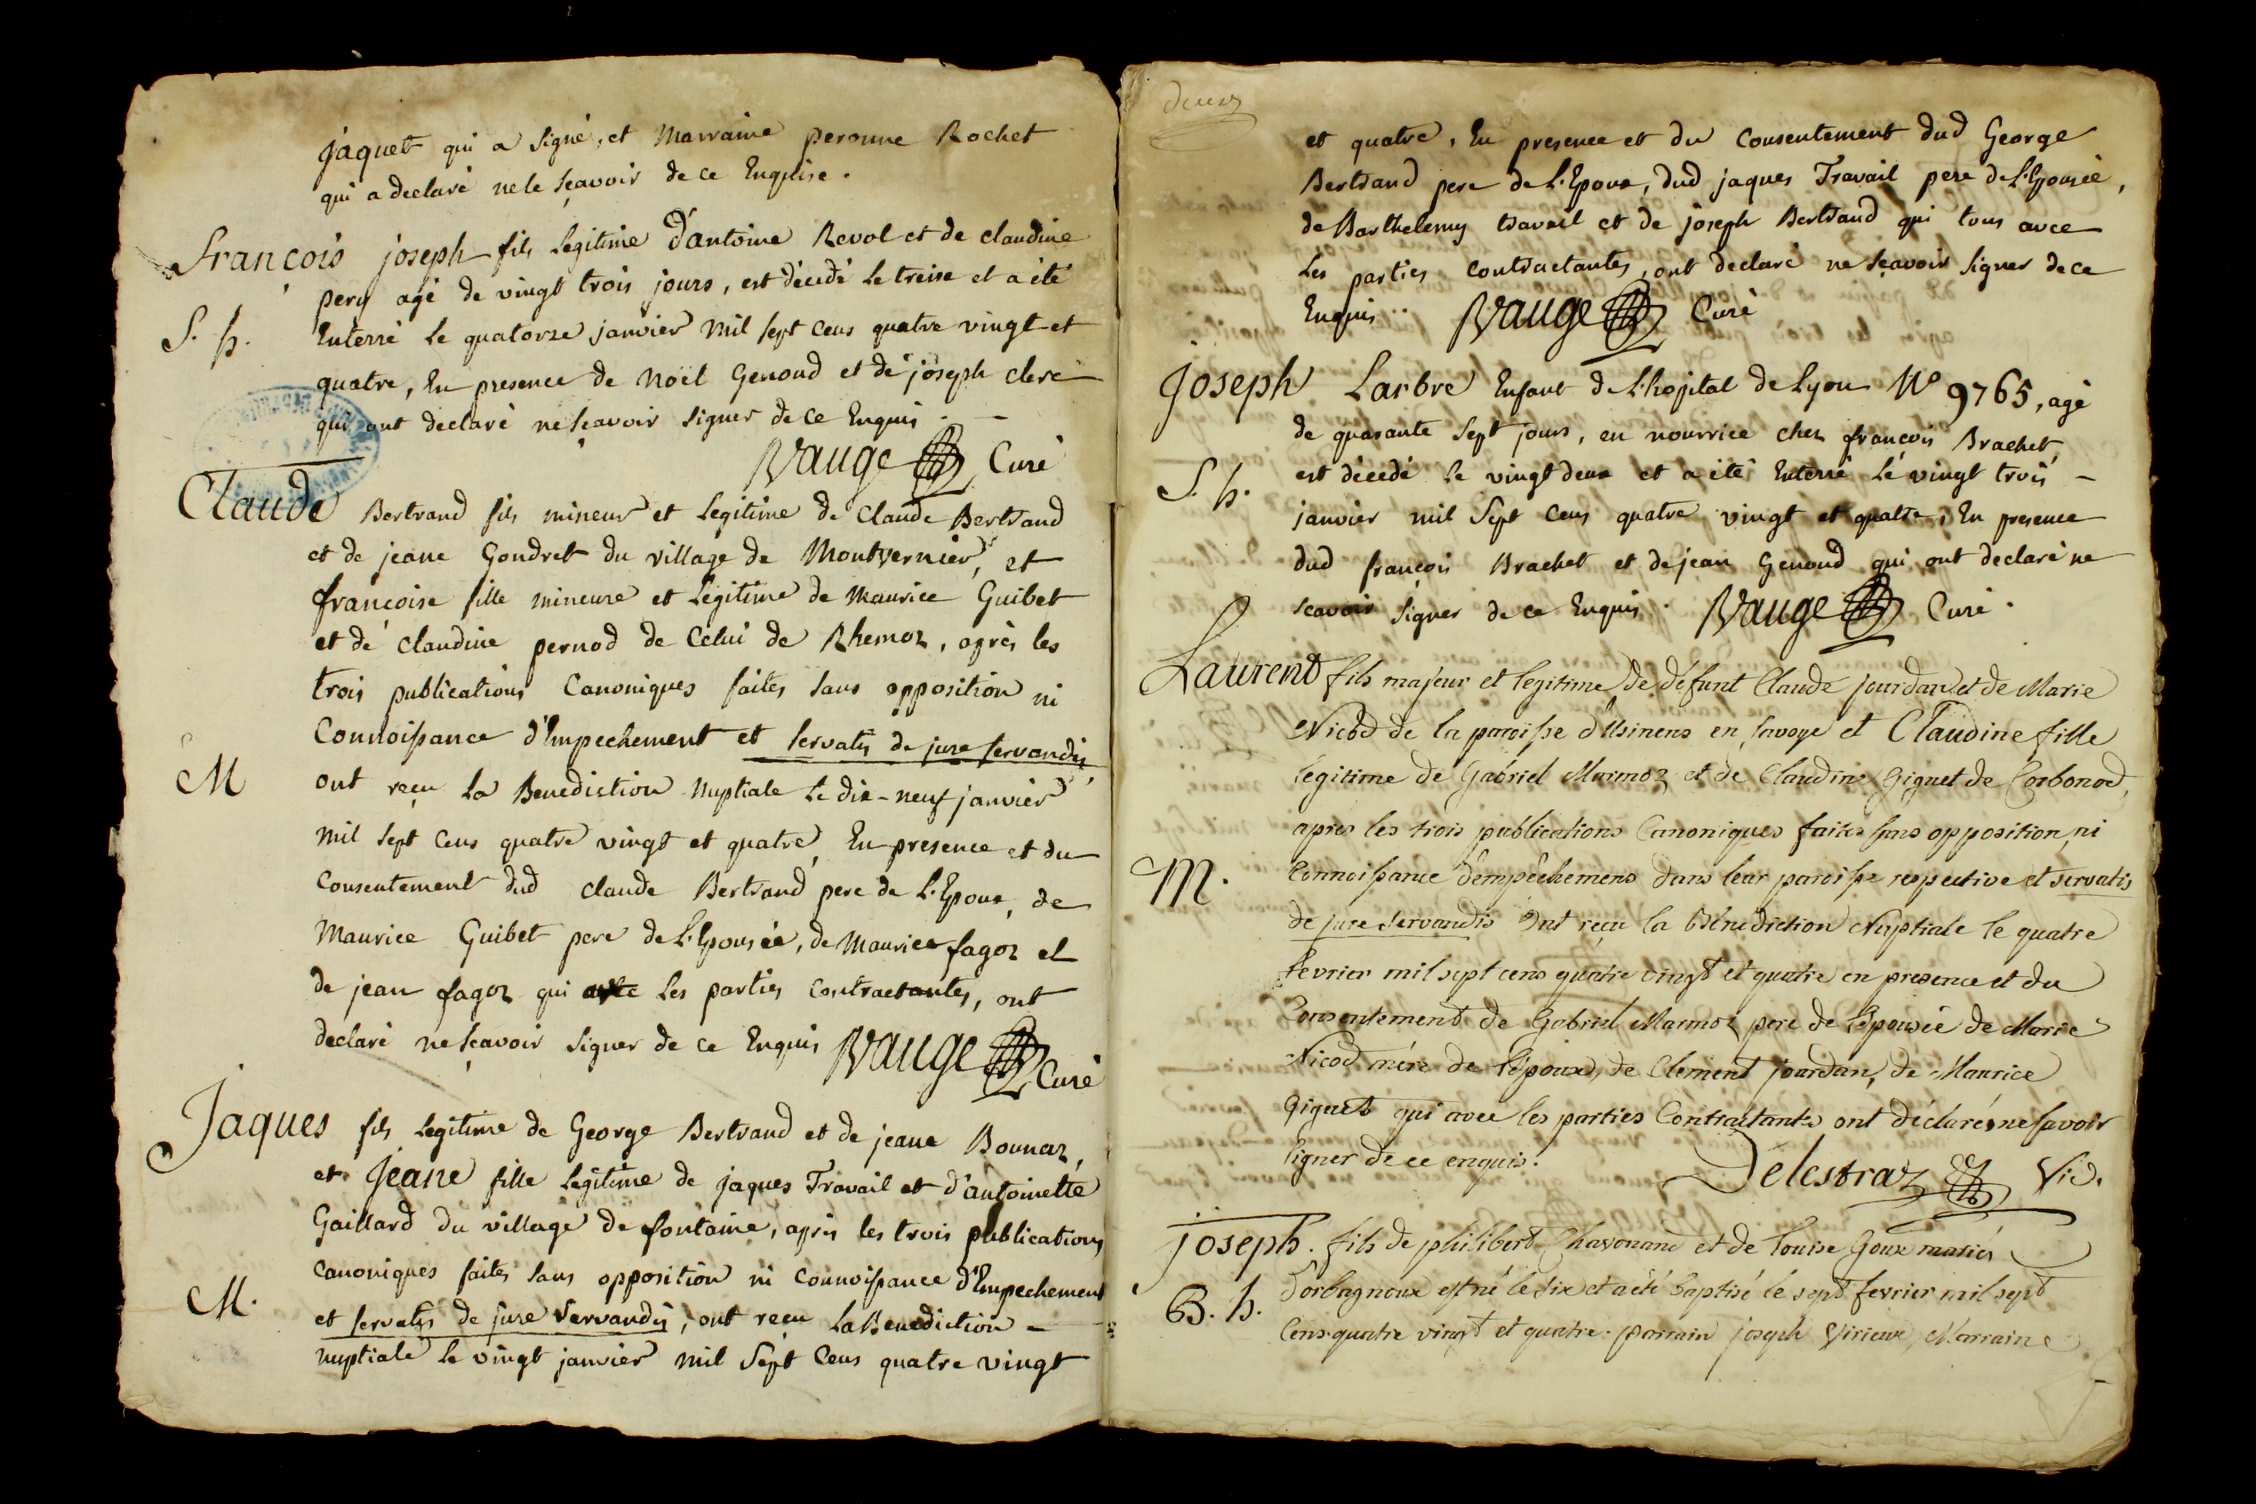 jaquet qui a signé, et Marraine peronne Rochet
qui a declaré ne le sçavoir de ce Enquise.
François joseph fils legitime d'antoine Revol et de claudine
pery agé de vingt trois jours, est décedé le treise et a été
S. h. Enterré le quatorze janvier mil sept cens quatre vingt et
quatre, En presence de Noël Genoud et de joseph clerc
qui ont declaré ne sçavoir signer de ce Enquis. –
Vauge Curé
Claude Bertrand fils mineur et legitime de Claude Bertrand
et de jeane Gondret du village de Montvernier, et
françoise fille mineure et legitime de Maurice Guibet
et de claudine pernod de celui de Rhemoz, après les
trois publications Canoniques faites sans opposition ni
Connoissance d'Empechement et servatis de jure servandis,
M ont reçu la Benediction Nuptiale le dix-neuf janvier
mil sept cens quatre vingt et quatre, En presence et du
Consentement dud Claude Bertrand pere de L'Epoux, de
Maurice Guibet pere de L'Epousée, de Maurice fagoz et
de jean fagoz qui avec les parties contractantes, ont
declaré ne sçavoir signer de ce Enquis Vauge Curé
Jaques fils legitime de George Bertrand et de jeane Bounaz,
et Jeane fille legitime de jaques Travail et d'antoinette
Gaillard du village de fontaine, après les trois publications
canoniques faites sans opposition ni connoissance d'Empechement
M. et servatis de jure servandis, ont reçu La Benediction –
nuptiale le vingt janvier mil sept cens quatre vingt
deux
et quatre, En presence et du consentement dud George
Bertrand pere de L'Epoux, dud jaques Travail pere de L'Epousée,
de Barthelemy travail et de joseph Bertrand qui tous avec
les parties contractantes, ont declaré ne sçavoir signer de ce
Enquis. Vauge Curé
Joseph Larbre Enfant de L'hopital de Lyon N° 9765, agé
de quarante sept jours, en nourrice chez françois Brachet,
est décedé le vingt deux et a été Enterré le vingt trois –
S. h. janvier mil sept cens quatre vingt et quatre, En presence
dud françois Brachet et de jean Genoud qui ont declaré ne
scavoir signer de ce Enquis. Vauge Curé.
Laurent fils majeur et legitime de défunt Claude jourdan et de Marie
Nicod de la paroisse d'Usinens en Savoye et Claudine fille
légitime de Gabriel Marmoz et de Claudine Giguet de Corbonod,
après les trois publications Canoniques faites sans opposition, ni
M. Connoissance d'empêchemens dans leur paroisse respective et servatis
de jure servandis ont reçu la Bénédiction Nuptiale le quatre
fevrier mil sept cens quatre vingt et quatre en presence et du
Consentement de Gabriel Marmoz pere de l'épousée de Marie
Nicod mére de l'époux, de Clement jourdan, de Maurice
Giguet qui avec les parties Contractantes ont déclarés ne savoir
signer de ce enquis. Delestraz Vic.
joseph. fils de philibert Chavonand et de Louise Goux mariés
B. h. d'orbagnoux est né le six et a été baptisé le sept fevrier mil sept
Cens quatre vingt et quatre. parrain joseph Virieux, Marraine